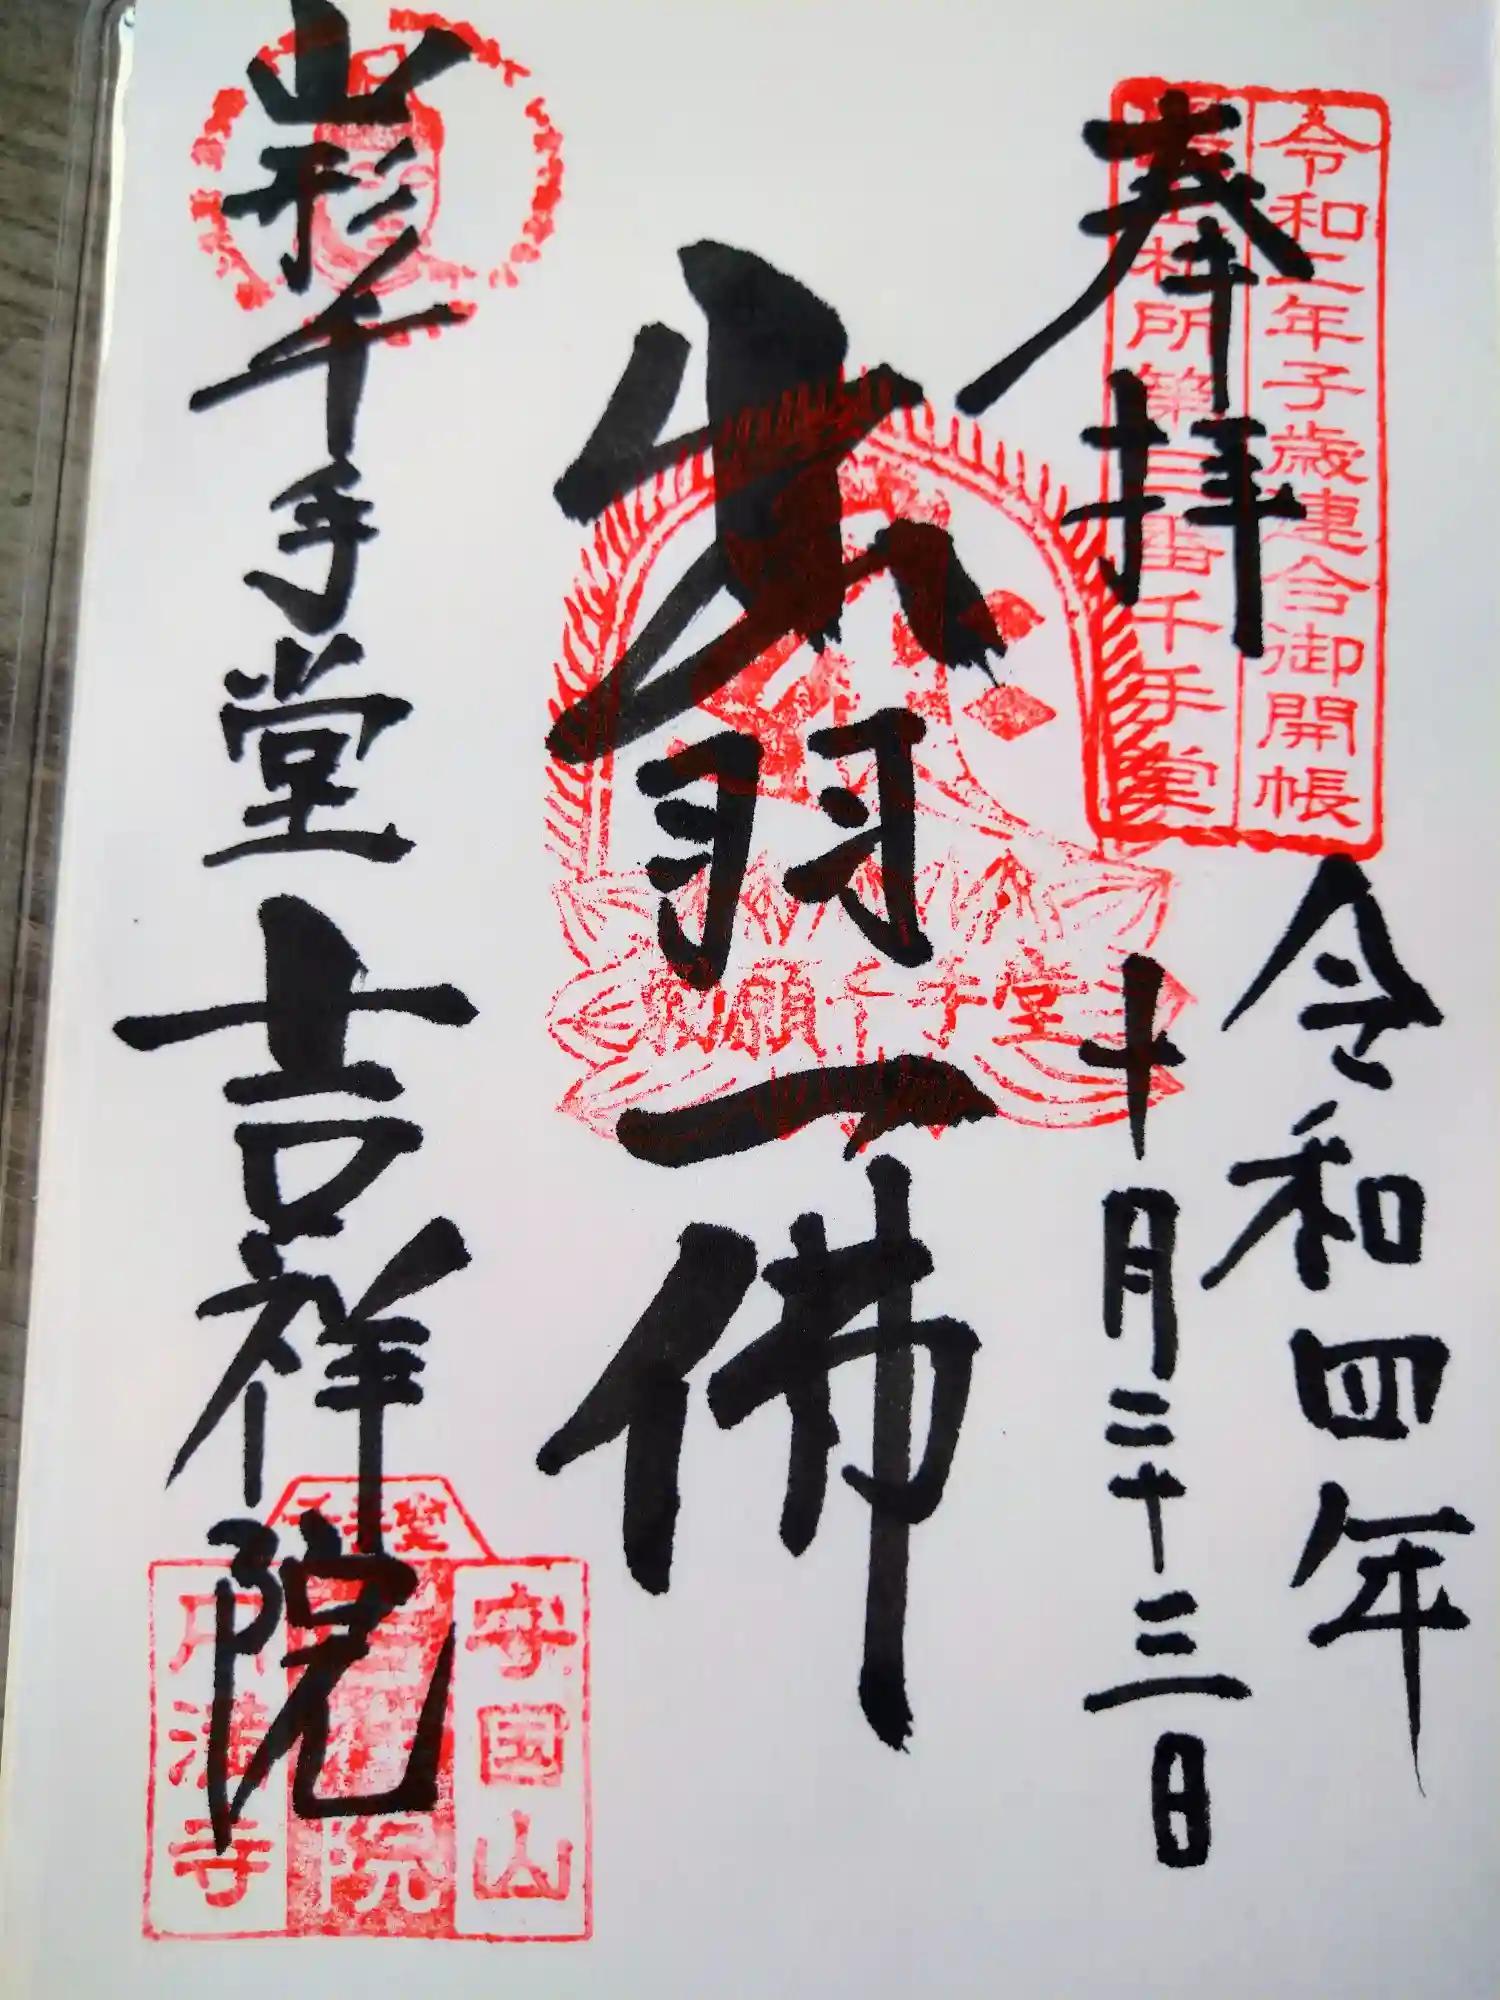 令和二年子歳連合御開帳
札所第三番千手堂
奉拝
令和四年
十月二十三日
出羽一佛
千手堂
山形千手堂吉祥院
千手堂
守国山
院
円法寺